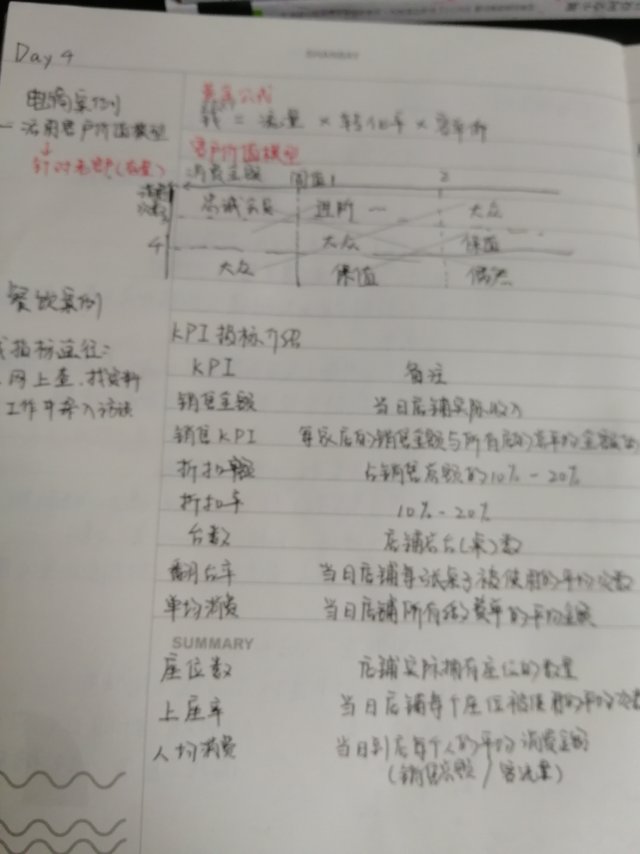 Day 4
SHANBAY
电商案例
黄金公式
钱 = 流量 × 转化率 × 客单价
一 活用客户价值模型
↓
客户价值模型
消费金额 阈值1 2
忠诚 进阶 大众
4 大众 保值
大众 保值 偶然
餐饮案例
找指标途径:
KPI指标介绍
网上查、找资料
KPI 备注
工作中深入访谈
销售金额 当日店铺实际收入
销售KPI 每家店的销售金额与所有店的平均金额
折扣额 占销售总额的10% - 20%
折扣率 10% - 20%
台数 店铺总台(桌)数
翻台率 当日店铺每张桌子被使用的平均次数
单均消费 当日店铺所有结账单的平均金额
SUMMARY
座位数 店铺实际拥有座位的数量
上座率 当日店铺每个座位被使用的平均次数
人均消费 当日到店每个人的平均消费金额
(销售总额/客流量)